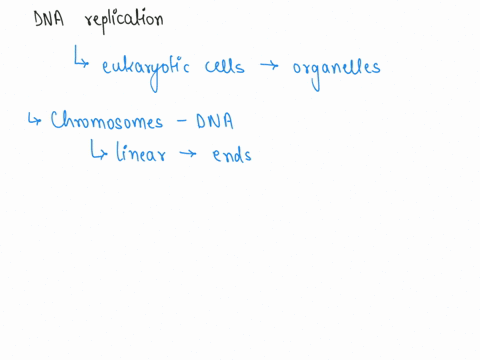 DNA replication
↳ eukaryotic cells → organelles
↳ Chromosomes - DNA
↳ linear → ends